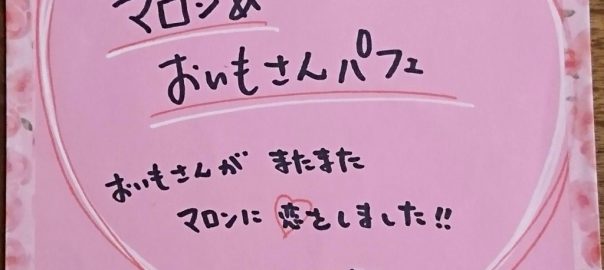 マロン&
おいもさんパフェ
おいもさんが またまた
マロンに 恋をしました!!